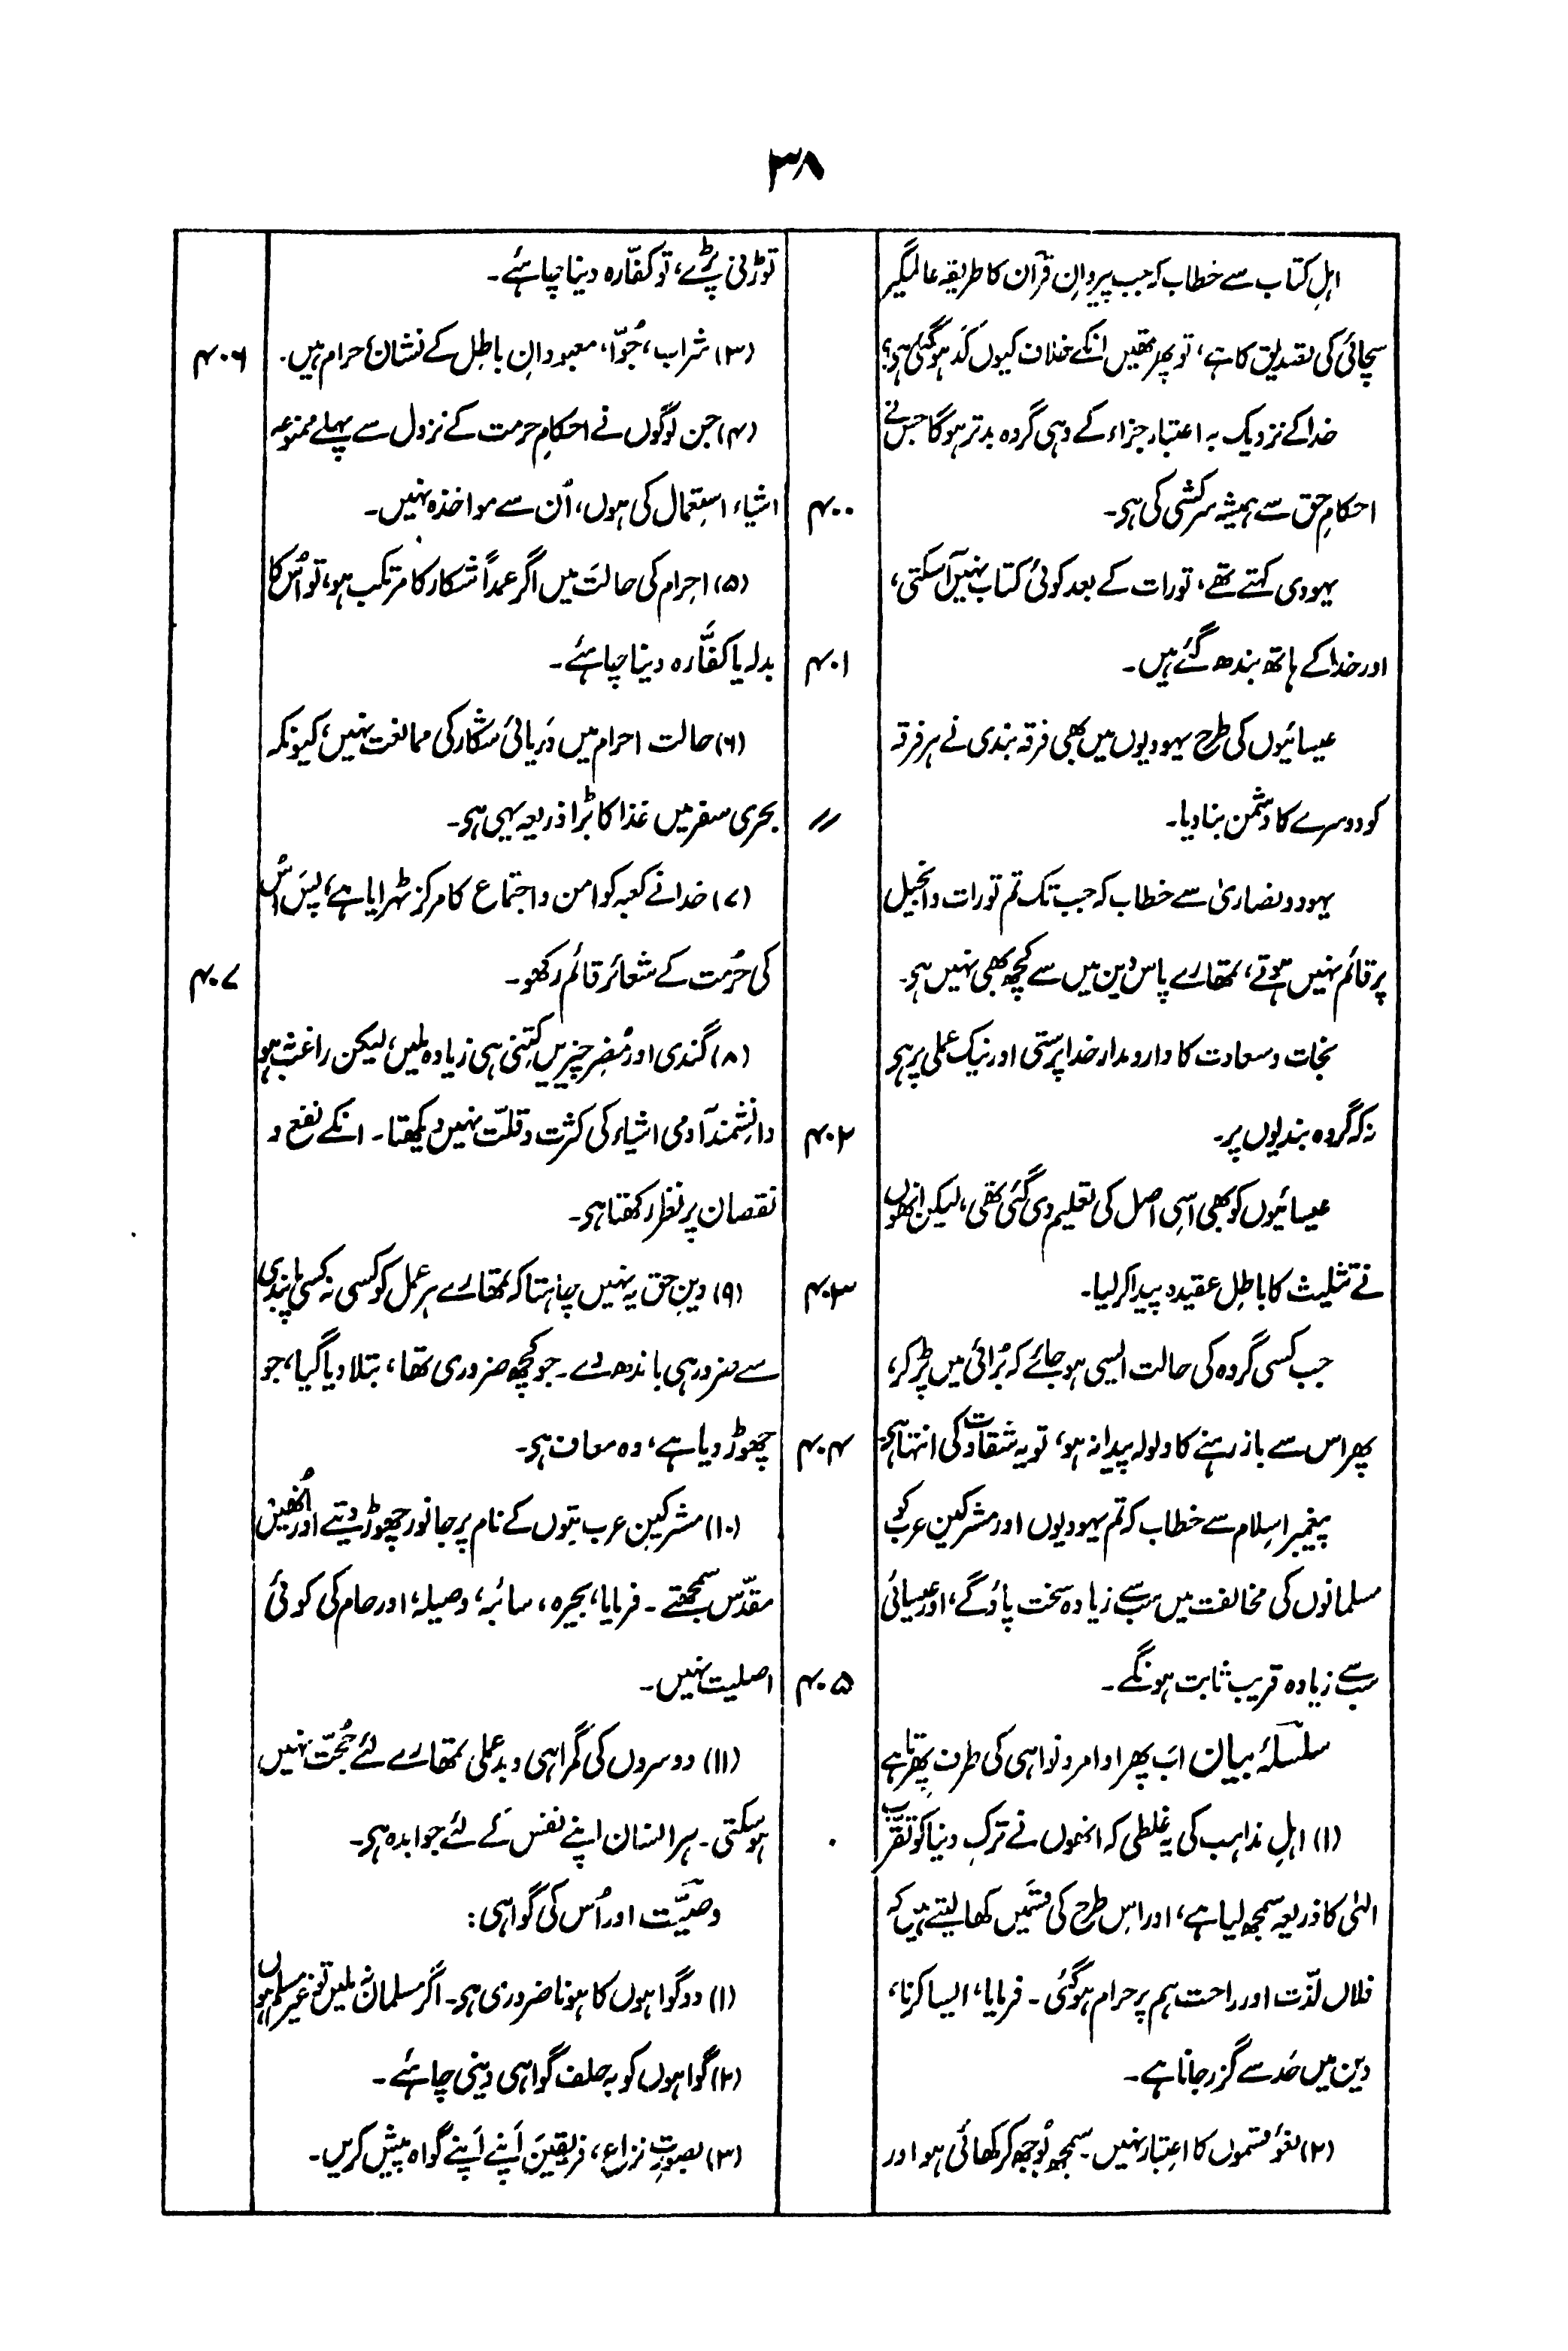 ۳۸
اہلِ کتاب سے خطاب کہ جب پیروانِ قرآن کا طریقہ عالمگیر
سچائی کی تصدیق کا ہے، تو پھر تمھیں انکے خلاف کیوں کد ہوگئی ہی؟
خدا کے نزدیک بہ اعتبار جزاء کے وہی گروہ بدتر ہوگا جس نے
احکامِ حق سے ہمیشہ سرکشی کی ہی۔ ۴۰۰
یہودی کہتے تھے، تورات کے بعد کوئی کتاب نہیں آسکتی،
اور خدا کے ہاتھ بندھ گئے ہیں۔ ۴۰۱
عیسائیوں کی طرح یہودیوں میں بھی فرقہ بندی نے ہر فرقہ
کو دوسرے کا دشمن بنا دیا۔ //
یہود و نصاریٰ سے خطاب کہ جب تک تم تورات و انجیل
پر قائم نہیں ہوتے، تمھارے پاس دین میں سے کچھ بھی نہیں ہی۔
نجات و سعادت کا دار و مدار خدا پرستی اور نیک عملی پر ہی
نہ کہ گروہ بندیوں پر۔ ۴۰۲
عیسائیوں کو بھی اسی اصل کی تعلیم دی گئی تھی، لیکن انھوں
نے تثلیث کا باطل عقیدہ پیدا کر لیا۔ ۴۰۳
جب کسی گروہ کی حالت ایسی ہو جائے کہ بُرائی میں پڑ کر،
پھر اس سے باز رہنے کا ولولہ پیدا نہ ہو، تو یہ شقاوت کی انتہا ہی۔ ۴۰۴
پیغمبر اسلام سے خطاب کہ تم یہودیوں اور مشرکین عرب کو
مسلمانوں کی مخالفت میں سب سے زیادہ سخت پاؤگے، اور عیسائی
سب سے زیادہ قریب ثابت ہونگے۔ ۴۰۵
سلسلۂ بیان اب پھر اوامر و نواہی کی طرف پھرتا ہے
(۱) اہلِ مذاہب کی یہ غلطی کہ انھوں نے ترکِ دنیا کو تقرّب
الٰہی کا ذریعہ سمجھ لیا ہے، اور اس طرح کی قسمیں کھا لیتے ہیں کہ
فلاں لذّت اور راحت ہم پر حرام ہوگئی۔ فرمایا، ایسا کرنا،
دین میں حد سے گزر جانا ہے۔
(۲) لغو قسموں کا اعتبار نہیں۔ سمجھ بُوجھ کر کھائی ہو اور
توڑنی پڑے، تو کفّارہ دینا چاہئے۔
(۳) شراب، جُوّا، معبودانِ باطل کے نشان، حرام ہیں۔ ۴۰۶
(۴) جن لوگوں نے احکامِ حرمت کے نزول سے پہلے ممنوعہ
اشیاء استعمال کی ہوں، اُن سے مواخذہ نہیں۔
(۵) احرام کی حالت میں اگر عمداً شکار کا مرتکب ہو، تو اُس کا
بدلہ یا کفّارہ دینا چاہئے۔
(۶) حالت احرام میں دریائی شکار کی ممانعت نہیں، کیونکہ
بحری سفر میں غذا کا بڑا ذریعہ یہی ہی۔
(۷) خدا نے کعبہ کو امن و اجتماع کا مرکز ٹہرایا ہے، پس اُس
کی حُرمت کے شعائر قائم رکھو۔ ۴۰۷
(۸) گندی اور مُضر چیزیں کتنی ہی زیادہ ملیں، لیکن راغب نہ ہو
دانشمند آدمی اشیاء کی کثرت و قلّت نہیں دیکھتا۔ انکے نفع و
نقصان پر نظر رکھتا ہی۔
(۹) دینِ حق یہ نہیں چاہتا کہ تمھارے ہر عمل کو کسی نہ کسی پابندی
سے ضرور ہی باندھ دے۔ جو کچھ ضروری تھا، بتلا دیا گیا، جو
چھوڑ دیا ہے، وہ معاف ہی۔
(۱۰) مشرکینِ عرب بتوں کے نام پر جانور چھوڑ دیتے اور اُنھیں
مقدّس سمجھتے۔ فرمایا، بحیرہ، سائبہ، وصیلہ، اور حام کی کوئی
اصلیت نہیں۔
(۱۱) دوسروں کی گمراہی و بدعملی تمھارے لئے حُجّت نہیں
ہو سکتی۔ ہر انسان اپنے نفس کے لئے جوابدہ ہی۔
وصیّت اور اُس کی گواہی:
(۱) دو گواہوں کا ہونا ضروری ہی۔ اگر مسلمان نہ ملیں تو غیر مسلم ہوں
(۲) گواہوں کو بہ حلف گواہی دینی چاہئے۔
(۳) بصورتِ نزاع، فریقین اپنے اپنے گواہ پیش کریں۔